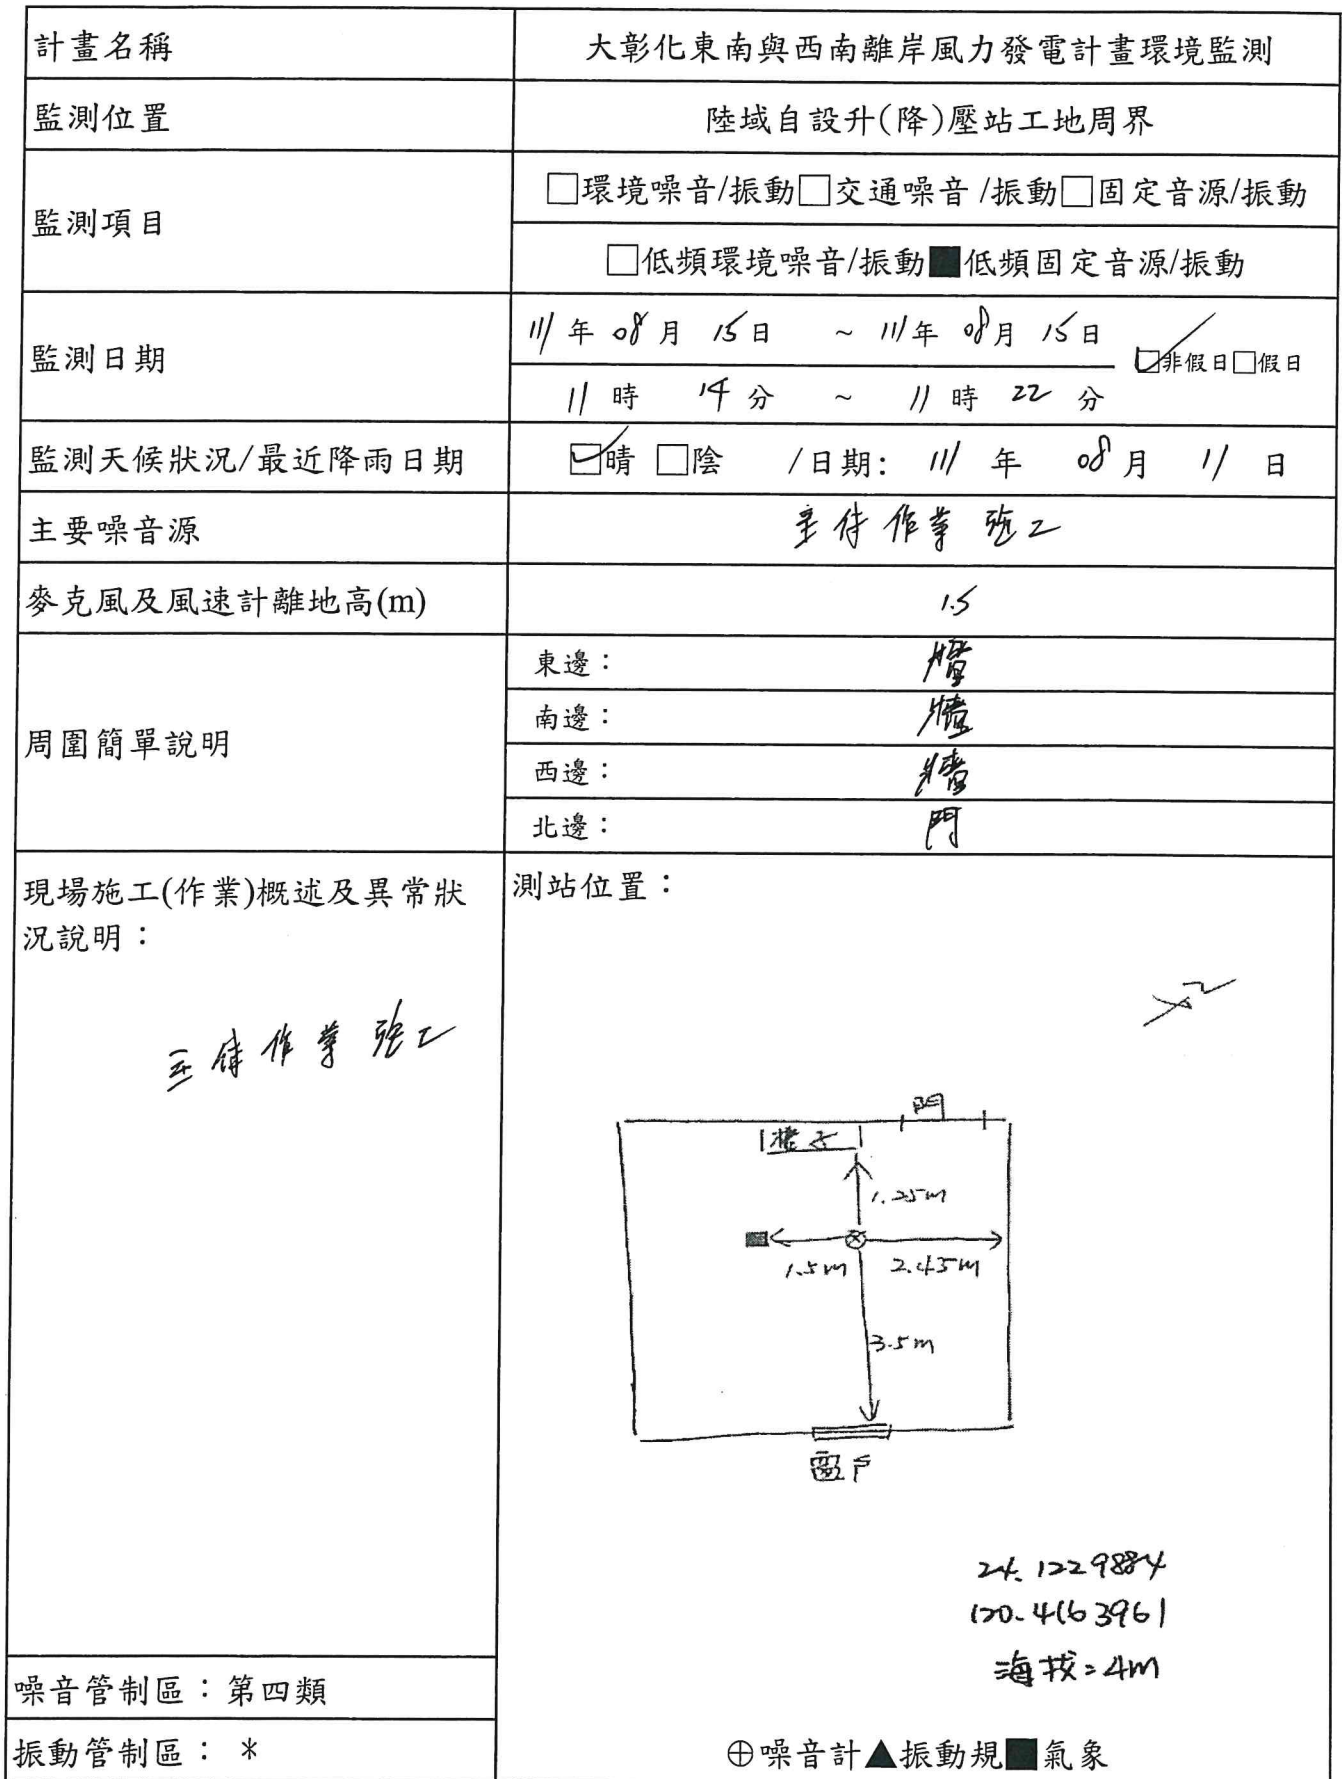 計畫名稱 大彰化東南與西南離岸風力發電計畫環境監測
監測位置 陸域自設升(降)壓站工地周界
監測項目 □環境噪音/振動□交通噪音 /振動□固定音源/振動
□低頻環境噪音/振動■低頻固定音源/振動
監測日期 111年 08月 15日 ~ 111年 08月 15日 ☑非假日□假日
11時 14分 ~ 11時 22分
監測天候狀況/最近降雨日期 ☑晴 □陰 /日期: 111年 08月 11日
主要噪音源 作業
麥克風及風速計離地高(m) 1.5
周圍簡單說明
東邊： 牆
南邊： 牆
西邊： 牆
北邊： 門
現場施工(作業)概述及異常狀
況說明：
作業
測站位置：
門
1.25m
1.5m 2.45m
3.5m
窗戶
24.1229884
120.4163961
海拔=4m
噪音管制區：第四類
振動管制區： *
⊕噪音計▲振動規■氣象